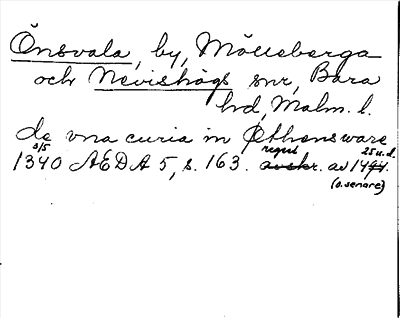 Önsvala, by, Mölleberga
och Nevishögs snr, Bara
hd, Malm. l.
de vna curia in Othensware
3/5 1340 AEDA 5, s. 163. regest av 1494. 25 u.d.
(o. senare)